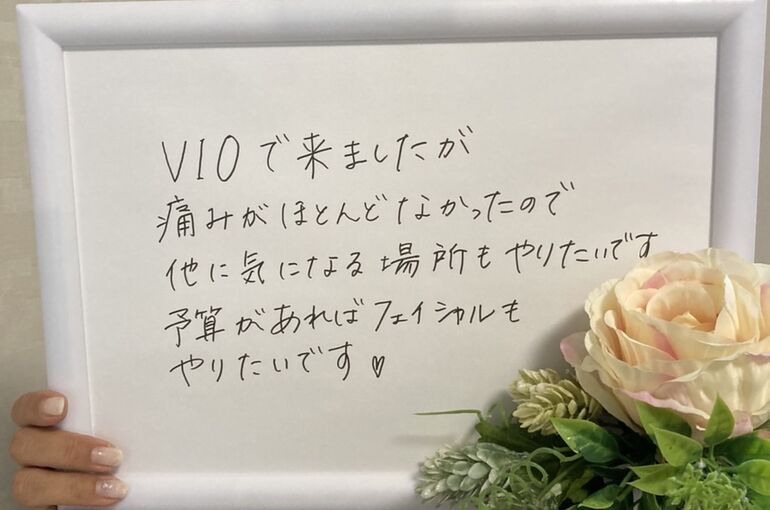 VIOで来ましたが
痛みがほとんどなかったので
他に気になる場所もやりたいです
予算があればフェイシャルも
やりたいです♡